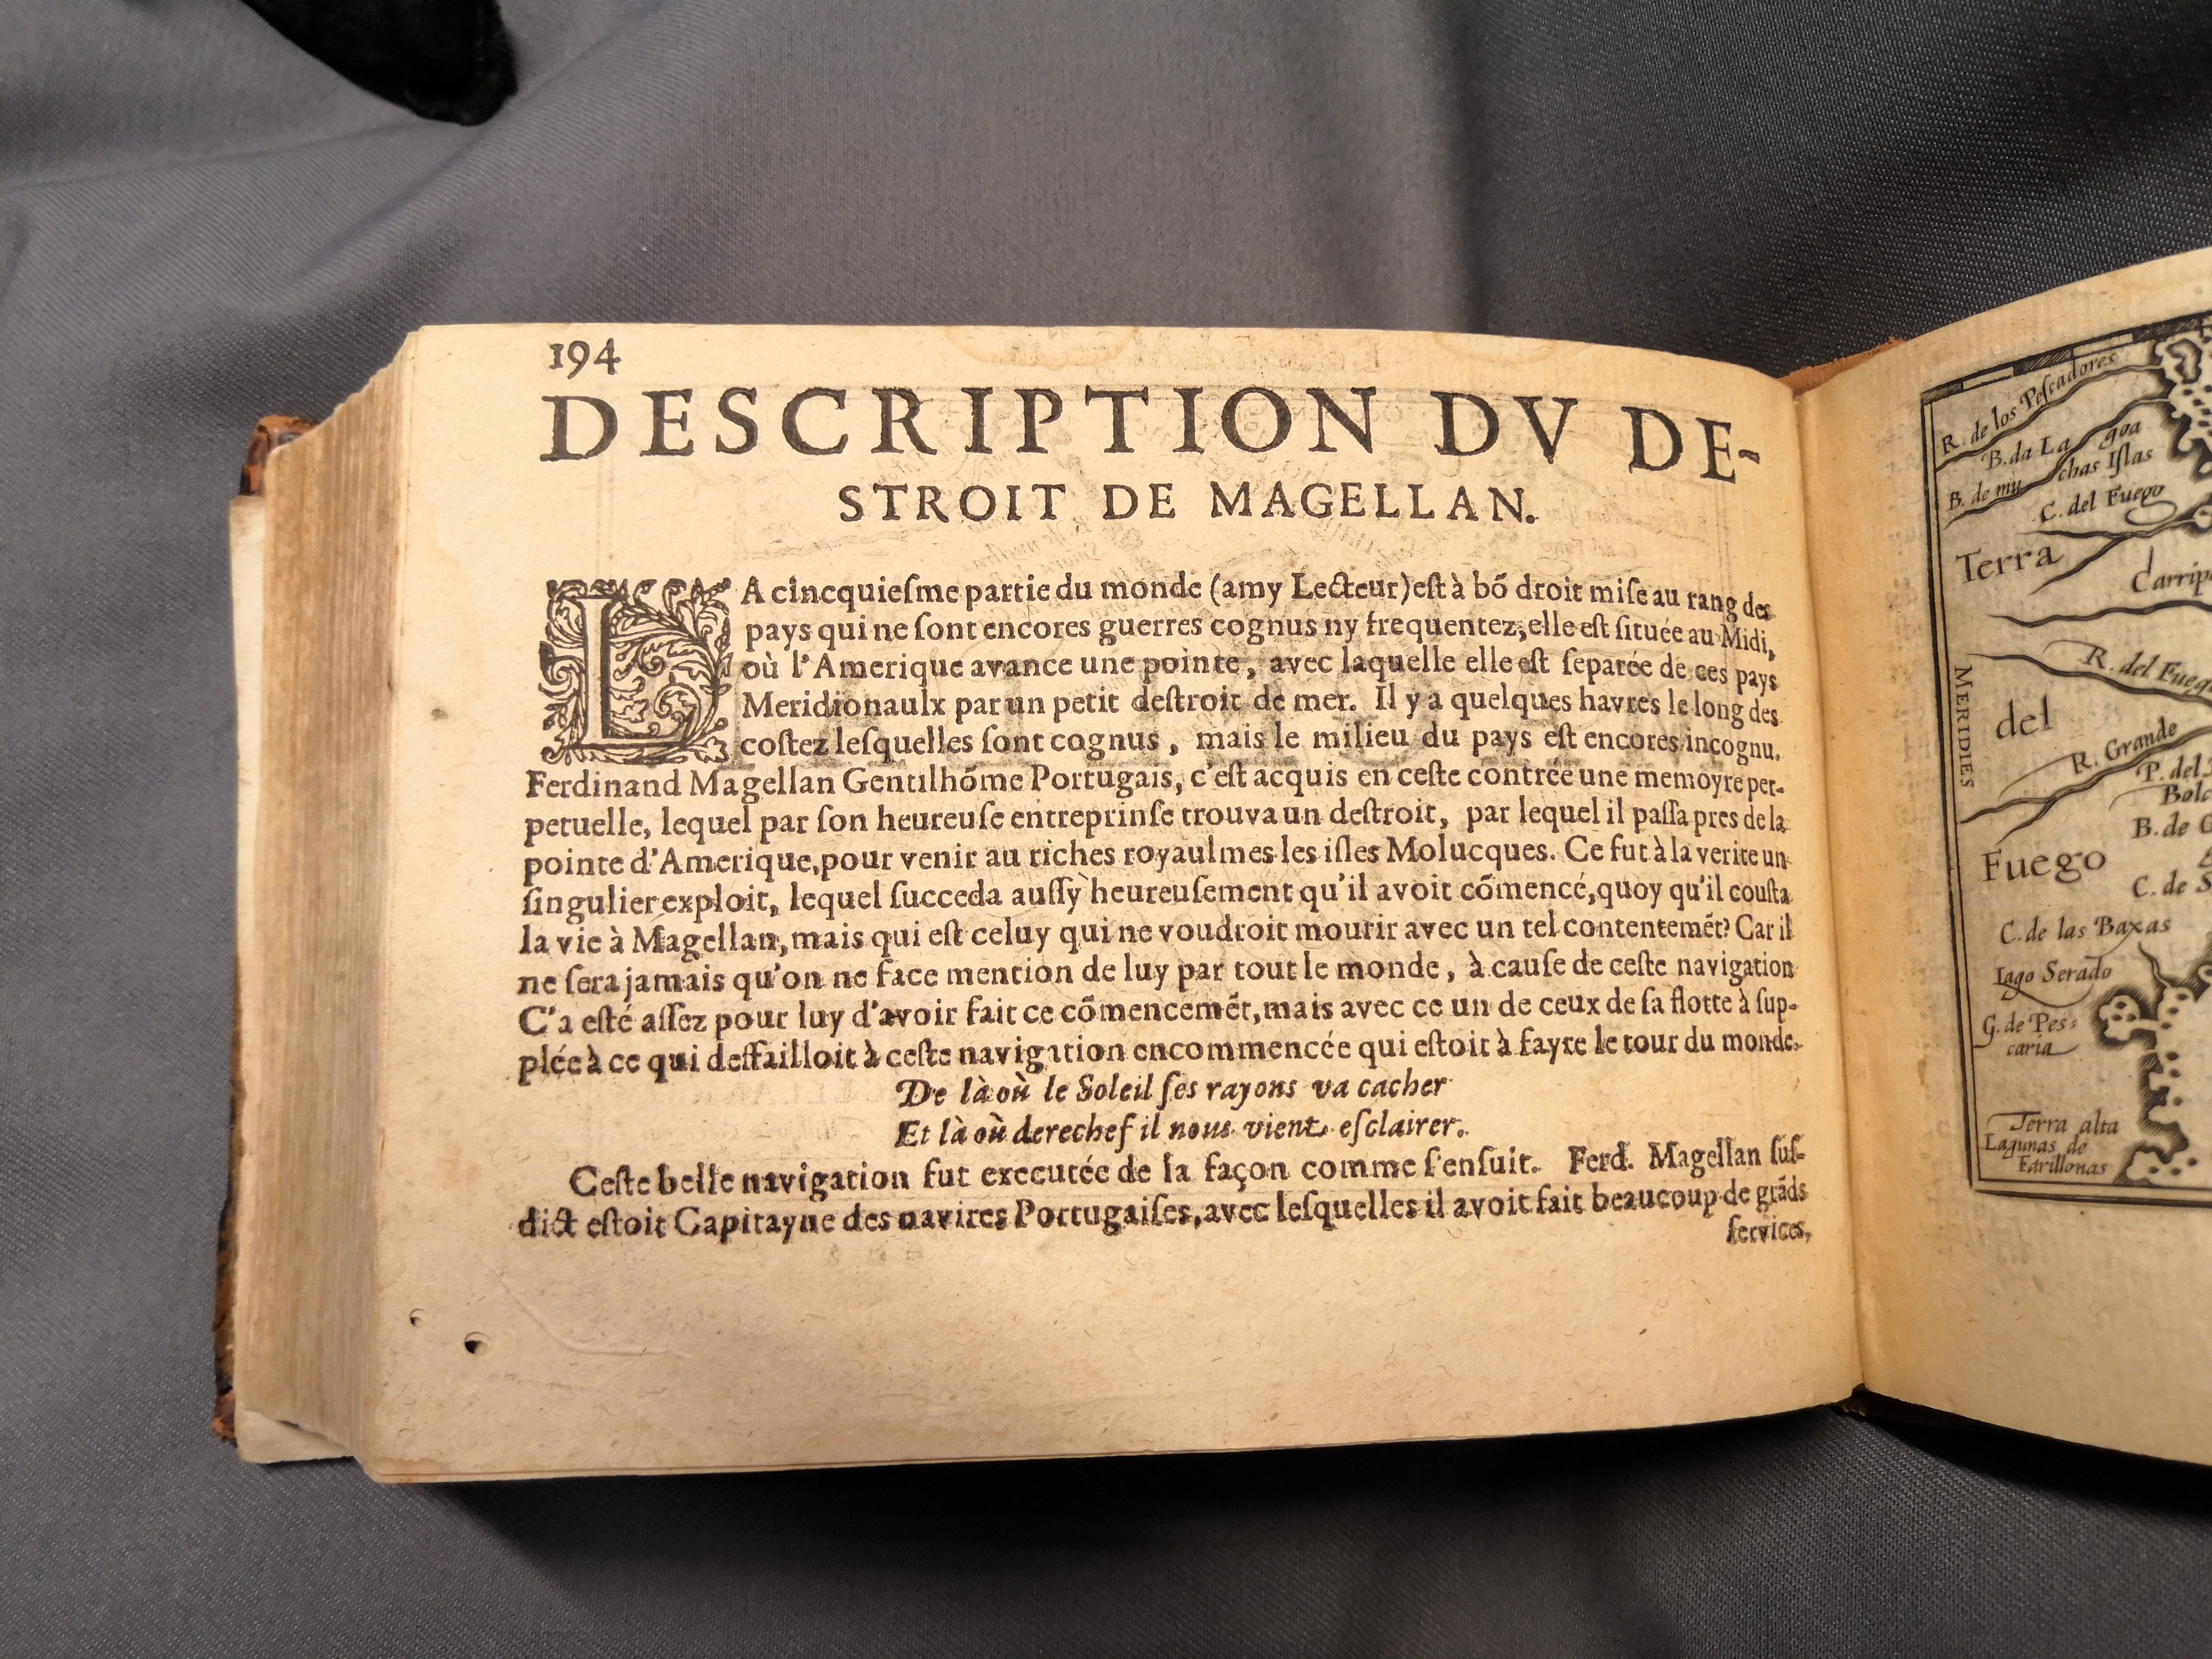 194
DESCRIPTION DV DE-
STROIT DE MAGELLAN.
LA cincquieſme partie du monde (amy Lecteur) eſt à bõ droit miſe au rang des
pays qui ne ſont encores guerres cognus ny frequentez, elle eſt ſituée au Midi,
où l'Amerique avance une pointe, avec laquelle elle eſt ſeparée de ces pays
Meridionaulx par un petit deſtroit de mer. Il y a quelques havres le long des
coſtez leſquelles ſont cognus, mais le milieu du pays eſt encores incognu.
Ferdinand Magellan Gentilhõme Portugais, c'eſt acquis en ceſte contrée une memoyre per-
petuelle, lequel par ſon heureuſe entreprinſe trouva un deſtroit, par lequel il paſſa pres de la
pointe d'Amerique, pour venir au riches royaulmes les iſles Molucques. Ce fut à la verite un
ſingulier exploit, lequel ſucceda auſſy heureuſement qu'il avoit cõmencé, quoy qu'il couſta
la vie à Magellan, mais qui eſt celuy qui ne voudroit mourir avec un tel contentemẽt? Car il
ne ſera jamais qu'on ne face mention de luy par tout le monde, à cauſe de ceſte navigation
C'a eſté aſſez pour luy d'avoir fait ce cõmencemẽt, mais avec ce un de ceux de ſa flotte à ſup-
plée à ce qui deffailloit à ceſte navigation encommencée qui eſtoit à fayre le tour du monde.
De là où le Soleil ſes rayons va cacher
Et là où derechef il nous vient eſclairer.
Ceſte belle navigation fut executée de la façon comme ſ'enſuit. Ferd. Magellan ſuſ-
dict eſtoit Capitayne des navires Portugaiſes, avec leſquelles il avoit fait beaucoup de grãds
ſervices,
R. de los Peſcadores
B. da La goa
B. de mu chas Iſlas
C. del Fuego
Terra
MERIDIES
R. del Fuego
del
R. Grande
P. del
B. de
Fuego
C. de
C. de las Baxas
Lago Serado
G. de Peſ-
caria
Terra alta
Lagunas de
Farillonas